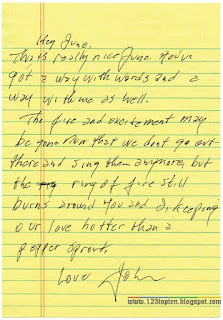 Hey June,
That's really nice June. You've
got a way with words and a
way with me as well.
The fire and excitement may
be gone now that we don't go out
there and sing them anymore, but
the ring of fire still
burns around you and I keeping
our love hotter than a
pepper sprout.
Love John
www.123topten.blogspot.com